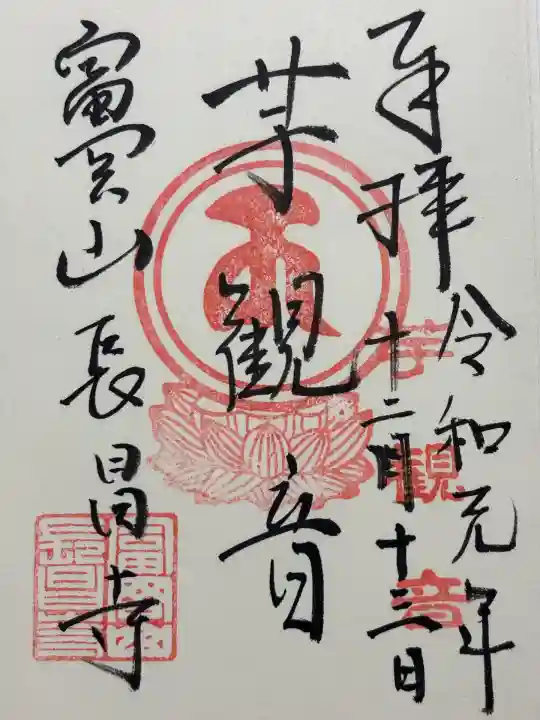 奉拝
令和元年
十二月十三日
芋観音
芋観音
富岡山 長昌寺